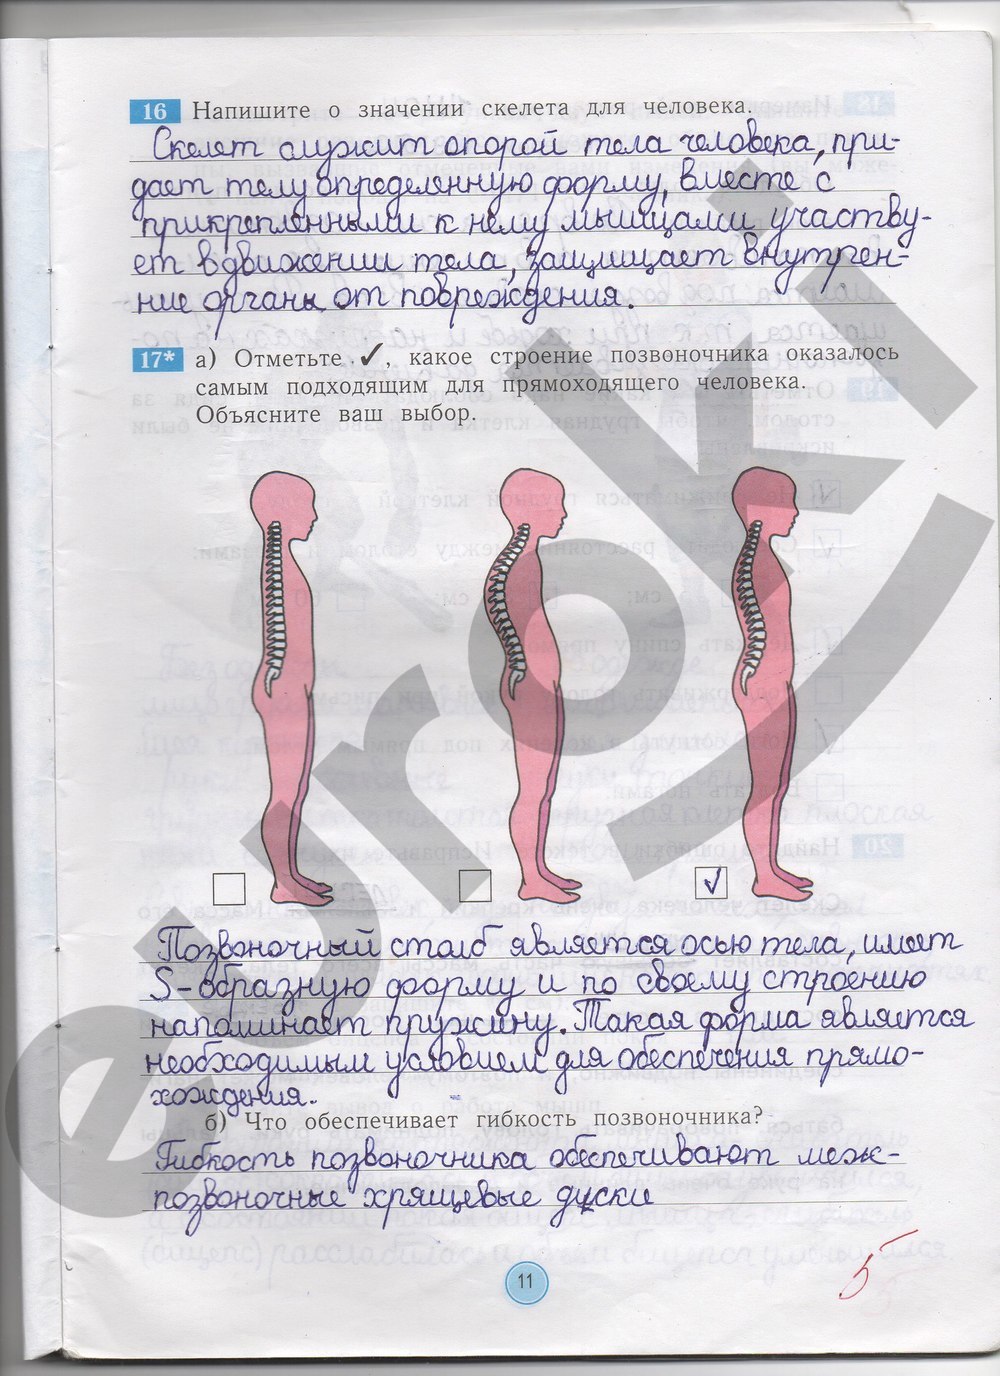 16 Напишите о значении скелета для человека.
Скелет служит опорой тела человека, при-
дает телу определенную форму, вместе с
прикрепленными к нему мышцами участву-
ет в движении тела, защищает внутрен-
ние органы от повреждения.
17* а) Отметьте ✓, какое строение позвоночника оказалось
самым подходящим для прямоходящего человека.
Объясните ваш выбор.
Позвоночный столб является осью тела, имеет
S-образную форму и по своему строению
напоминает пружину. Такая форма является
необходимым условием для обеспечения прямо-
хождения.
б) Что обеспечивает гибкость позвоночника?
Гибкость позвоночника обеспечивают меж-
позвоночные хрящевые диски
11
5
euroki